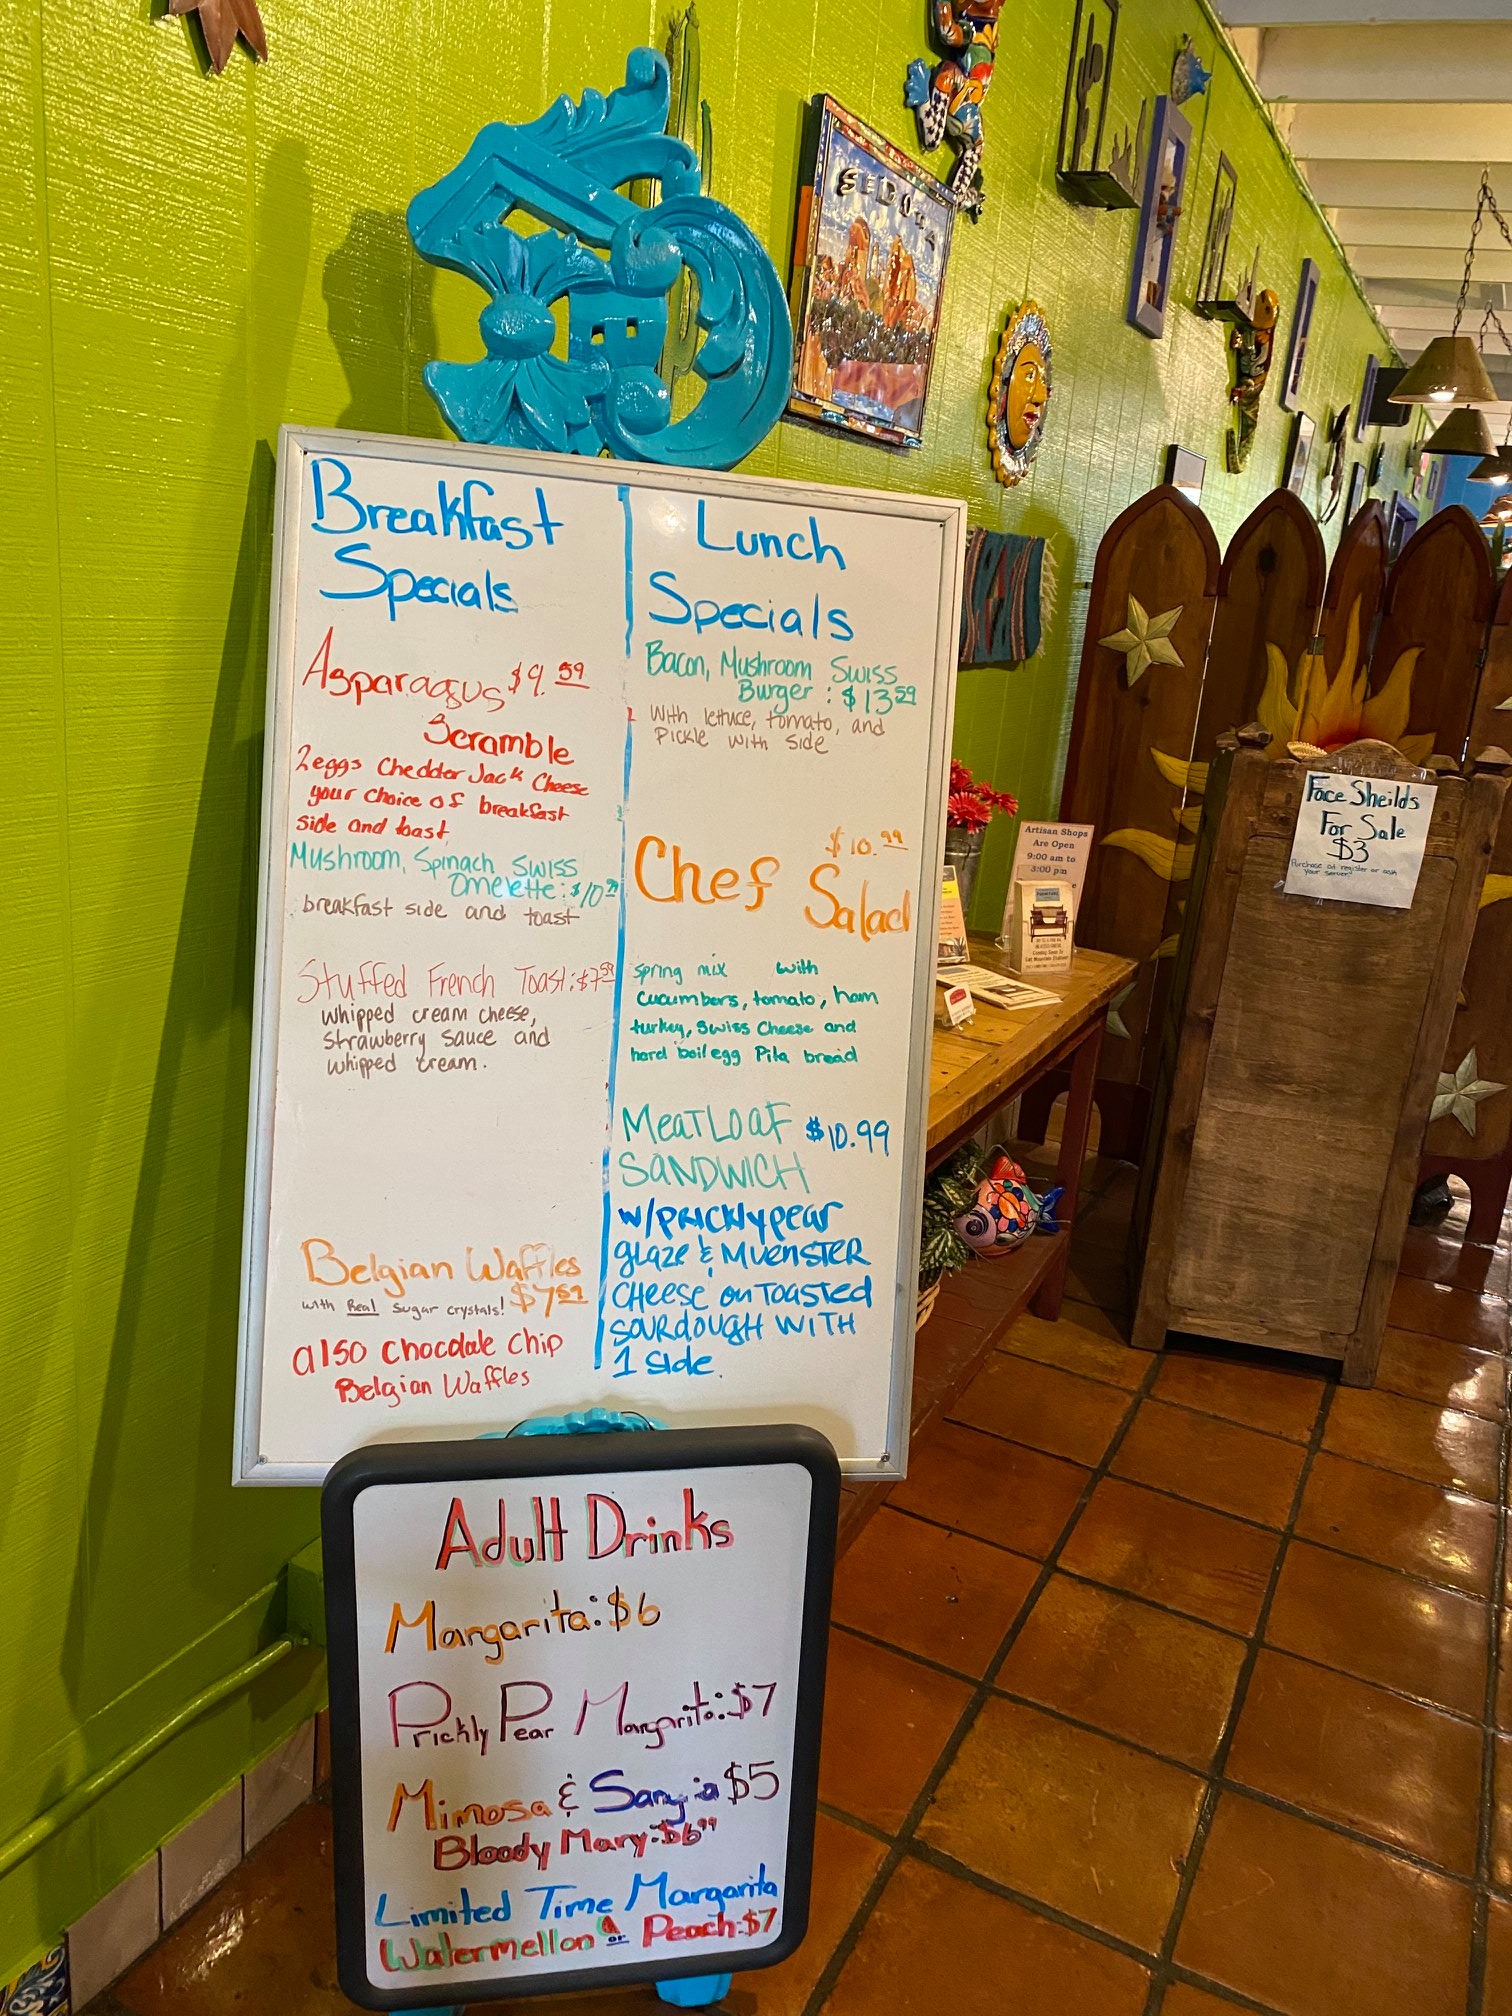 SEDONA
Breakfast
Specials
Asparagus $9.59
Scramble
2 eggs Chedder Jack Cheese
your choice of breakfast
side and toast
Mushroom, Spinach, Swiss
Omelette: $10
breakfast side and toast
Stuffed French Toast: $7.59
whipped cream cheese,
strawberry sauce and
whipped cream.
Belgian Waffles
with Real sugar crystals! $7.59
also chocolate chip
Belgian Waffles
Lunch
Specials
Bacon, Mushroom Swiss
Burger: $13.59
With lettuce, tomato, and
Pickle with side
$10.99
Chef Salad
spring mix with
cucumbers, tomato, ham
turkey, swiss cheese and
hard boil egg Pita bread
MEATLOAF $10.99
SANDWICH
w/PRICKLY PEAR
GLAZE & MUENSTER
CHEESE ON TOASTED
SOURDOUGH WITH
1 SIDE.
Adult Drinks
Margarita: $6
Prickly Pear Margarita: $7
Mimosa & Sangria $5
Bloody Mary: $6.99
Limited Time Margarita
Watermellon or Peach: $7
Artisan Shops
Are Open
9:00 am to
3:00 pm
Face Sheilds
For Sale
$3
Purchase at register or ask
your server!